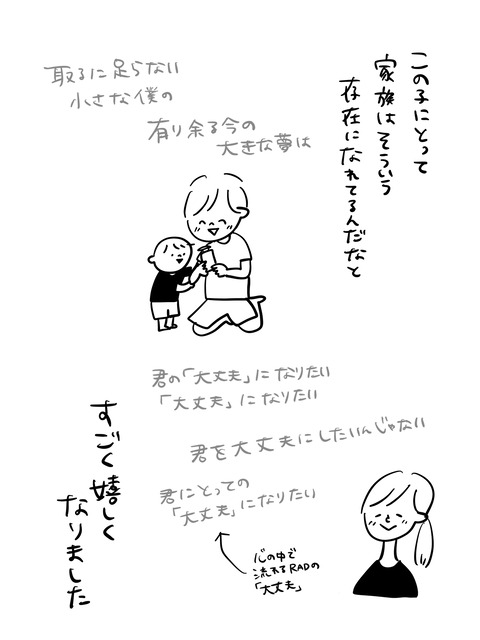 この子にとって
家族はそういう
存在になれてるんだなと
取るに足らない
小さな僕の
有り余る今の
大きな夢は
君の「大丈夫」になりたい
「大丈夫」になりたい
君を大丈夫にしたいんじゃない
君にとっての
「大丈夫」になりたい
心の中で
流れるRADの
「大丈夫」
すごく嬉しく
なりました